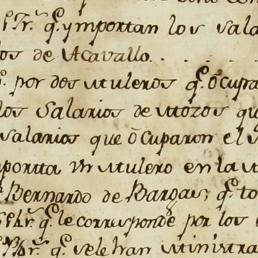 q̃. ymportan los sala
os de Acavallo
por dos Muleros q̃. ôcupa
los Salarios de Mozos que
salarios que ôcuparon el
porta un Mulero en la
Bernardo de Bargas; q̃. to
q̃. le corresponde por los
q̃. se le han Ministra